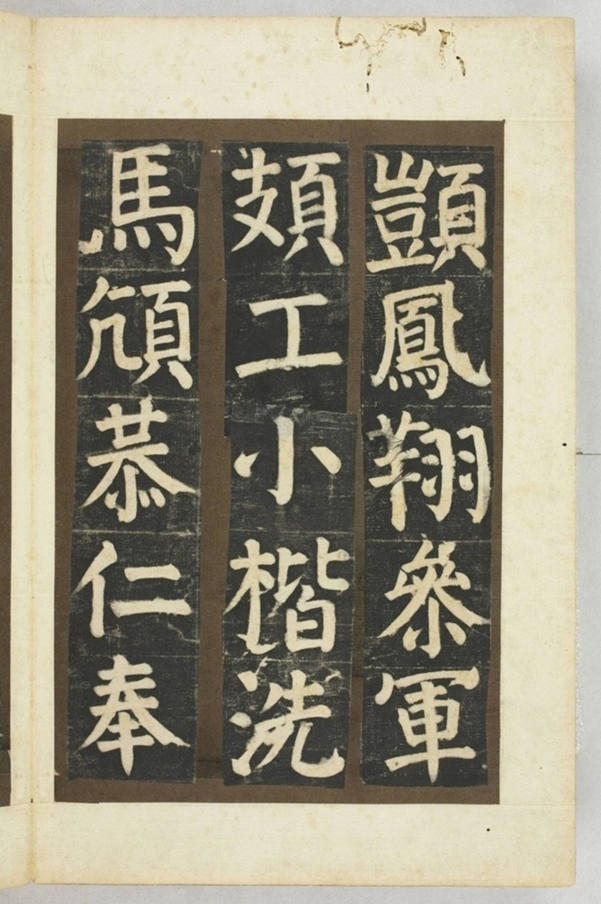 顗鳳翔叅軍
頍工小楷洗
馬頏恭仁奉